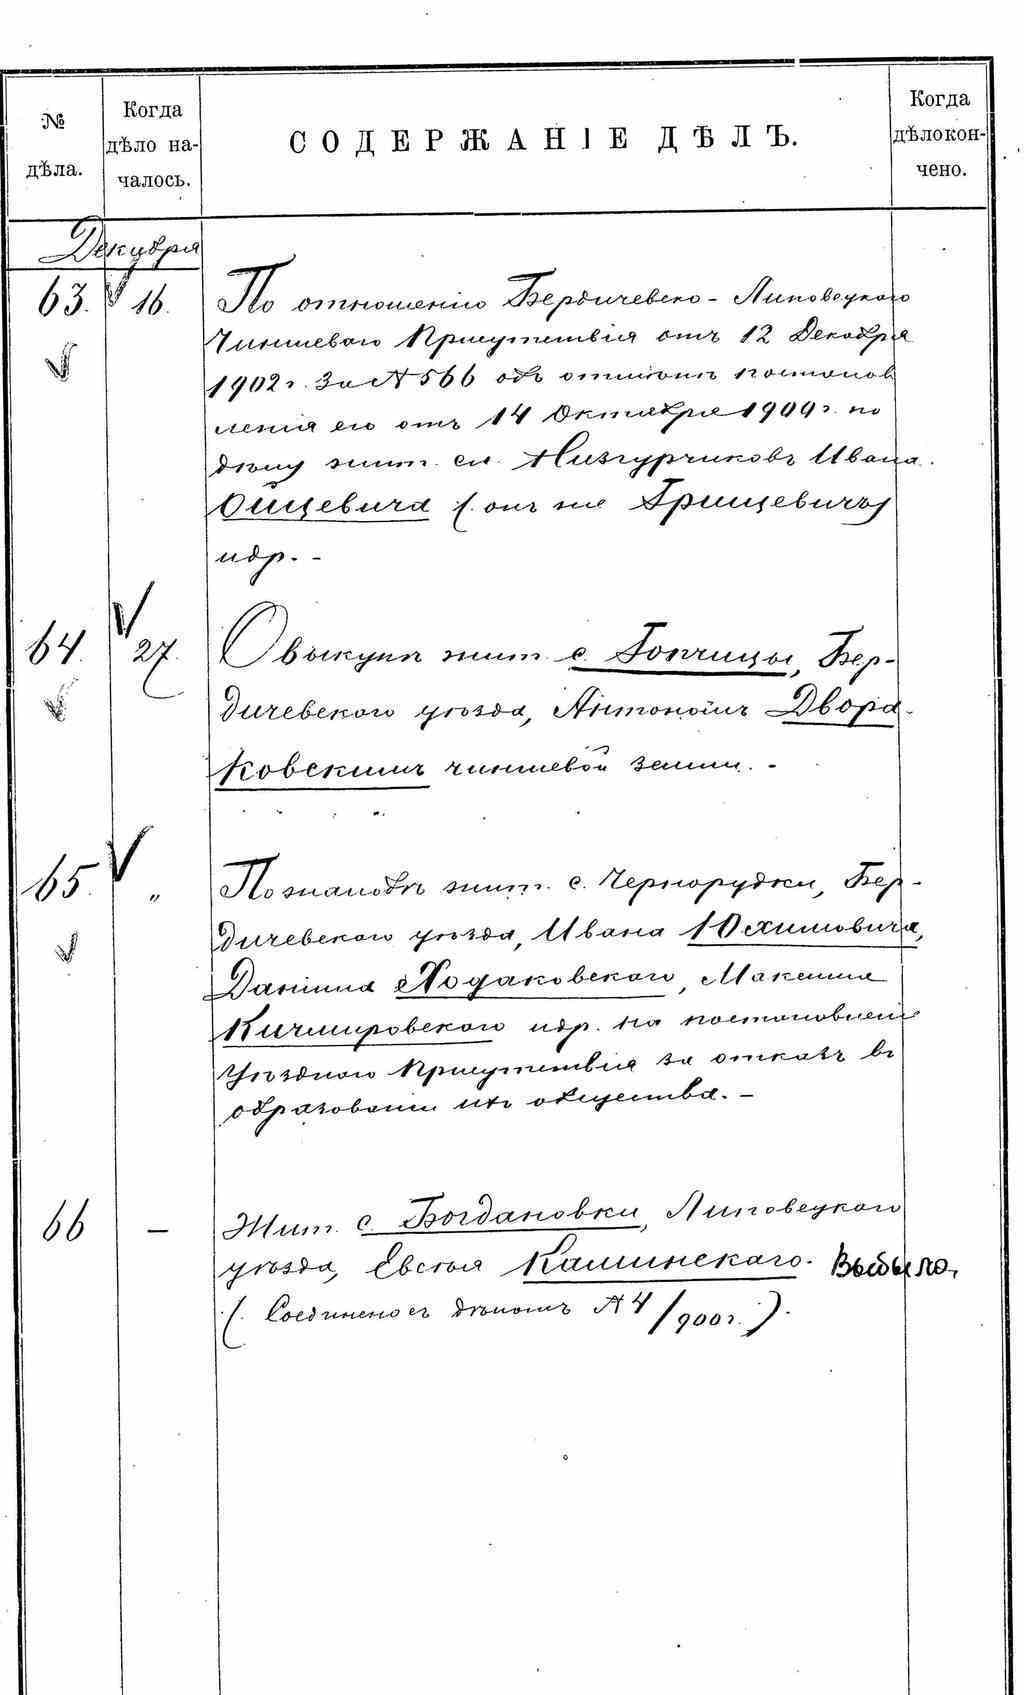 № дѣла.
Когда дѣло на-чалось.
СОДЕРЖАНІЕ ДѢЛЪ.
Когда дѣло кон-чено.
Декабря
63. 16. По отношенію Бердичевско-Липовецкаго
Чиншевого Присутствія отъ 12 Декабря
1902 г. За № 566 объ отмѣнѣ постанов
ленія его отъ 14 Октября 1900 г. по
дѣлу жит. сл. Низгурчиковъ Ивана
Ойцевича (онъ же Грищевичъ)
и др. -
64. 27. О выкупѣ жит. с. Гопчицы, Бер-
дичевского уѣзда, Антономъ Двора-
ковскимъ чиншевой земли. -
65. „ По жалобѣ жит. с. Чернорудки, Бер-
дичевского уѣзда, Ивана Юхимовича,
Даніила Ходаковского, Максима
Кичмировского и др. на постановленіе
Уѣздного Присутствія за отказъ въ
образованіи ихъ общества. -
66 — Жит. с. Богдановки, Липовецкого
уѣзда, Евсѣя Каминскаго. Выбыло,
(Соединено съ дѣломъ № 4/900 г.).